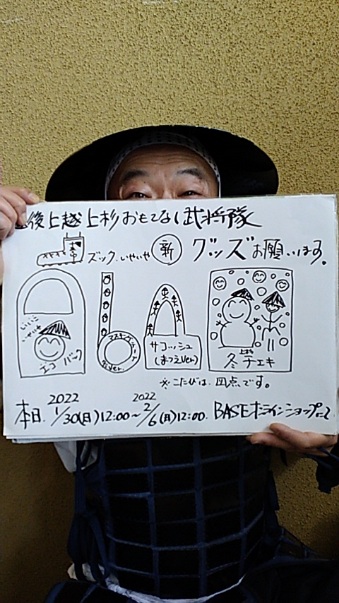 後上越上杉おもてなし武将隊
ズック、いやいや 新 グッズお願いします。
エコバッグ
マスキングテープ
サコッシュ
冬チェキ
※こたびは、四点、です。
本日、2022 1/30(日)12:00~2022 2/6(日)12:00. BASEオンラインショップにて